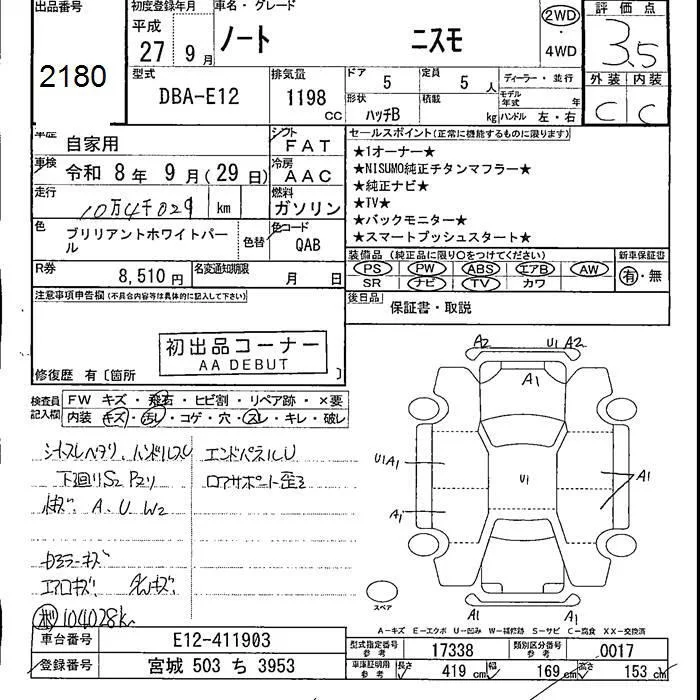 出品番号
2180
初度登録年月
平成
27年9月
車名・グレード
ノート ニスモ
2WD
・
4WD
評価点
3.5
外装 内装
C C
型式
DBA-E12
排気量
1198
CC
ドア
5
定員
5人
形状
ハッチB
積載
kg
ディーラー・並行
モデル年式 年
ハンドル 左・右
車歴
自家用
シフト
FAT
車検
令和 8年 9月(29日)
冷房
AAC
走行
10万4千029 km
燃料
ガソリン
色
ブリリアントホワイトパール
色替
色コード
QAB
R券
8,510円
名変通知期限
月 日
セールスポイント(正常に機能するものに限ります)
★1オーナー★
★NISUMO純正チタンマフラー★
★純正ナビ★
★TV★
★バックモニター★
★スマートプッシュスタート★
装備品(純正品に限り○をつけてください)
PS PW ABS エアB AW
SR ナビ TV カワ
新車保証書
有・無
後日品
保証書・取説
注意事項申告欄(不具合内容等は具体的に記入して下さい)
初出品コーナー
AA DEBUT
修復歴 有〔箇所 〕
検査員記入欄
FW キズ・飛石・ヒビ割・リペア跡・×要
内装 キズ・汚レ・コゲ・穴・スレ・キレ・破レ
シートスレヘタリ、ハンドルスレ
エンドパネルU
下廻りS2 Pスリ
コアサポート歪ミ
A.U W2
ドアミラーキズ
エアロキズ
104028k
A2 U1 A2
A1
U1A1
U1
A1
A1
A1 A1
スペア
A-キズ E-エクボ U-凹み W-補修跡 S-サビ C-腐食 XX-交換済
車台番号
E12-411903
登録番号
宮城 503 ち 3953
型式指定番号
参考
17338
類別区分番号
参考
0017
車庫証明用
参考
長さ 419cm
幅 169cm
高さ 153cm